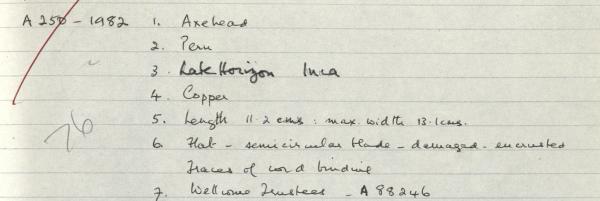 A 250 - 1982 1. Axehead
2. Peru
3. Late Horizon Inca
4. Copper
5. Length 11.2 cms : max. width 13.1 cms.
6 Flat - semicircular blade - damaged - encrusted
Traces of cord binding
7. Wellcome Trustees - A 88246
76